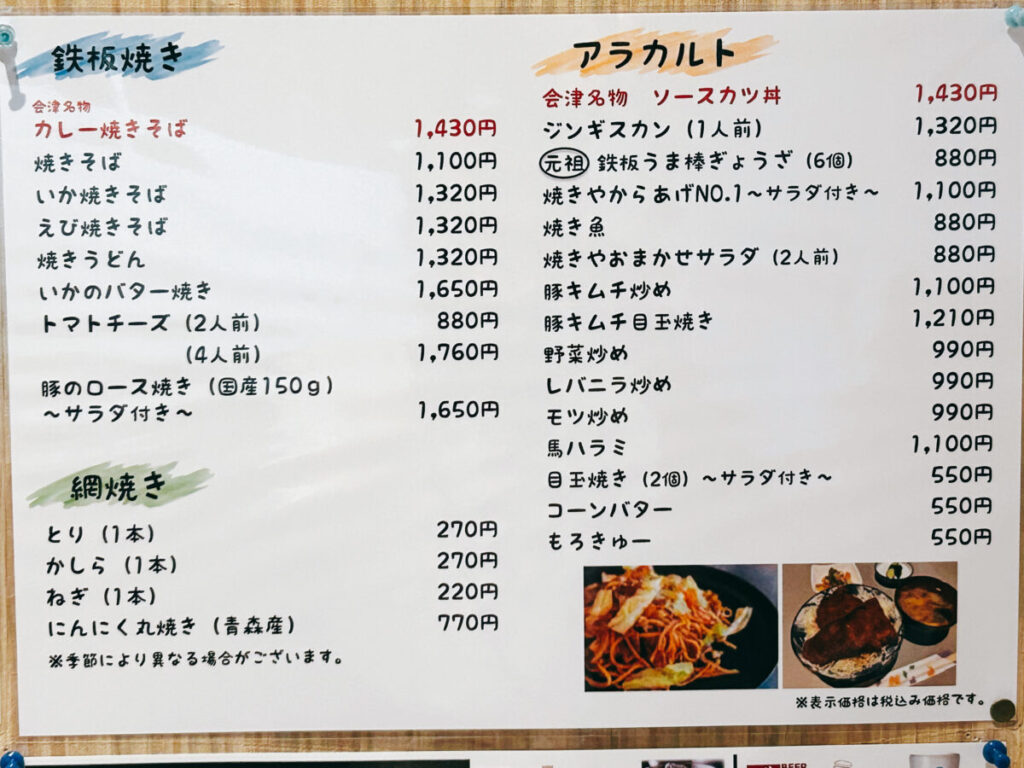 鉄板焼き
会津名物
カレー焼きそば 1,430円
焼きそば 1,100円
いか焼きそば 1,320円
えび焼きそば 1,320円
焼きうどん 1,320円
いかのバター焼き 1,650円
トマトチーズ (2人前) 880円
(4人前) 1,760円
豚のロース焼き (国産150g)
～サラダ付き～ 1,650円
網焼き
とり (1本) 270円
かしら (1本) 270円
ねぎ (1本) 220円
にんにく丸焼き (青森産) 770円
※季節により異なる場合がございます。
アラカルト
会津名物 ソースカツ丼 1,430円
ジンギスカン (1人前) 1,320円
元祖 鉄板うま棒ぎょうざ (6個) 880円
焼きやからあげNO.1～サラダ付き～ 1,100円
焼き魚 880円
焼きやおまかせサラダ (2人前) 880円
豚キムチ炒め 1,100円
豚キムチ目玉焼き 1,210円
野菜炒め 990円
レバニラ炒め 990円
モツ炒め 990円
馬ハラミ 1,100円
目玉焼き (2個) ～サラダ付き～ 550円
コーンバター 550円
もろきゅー 550円
※表示価格は税込み価格です。
BEER